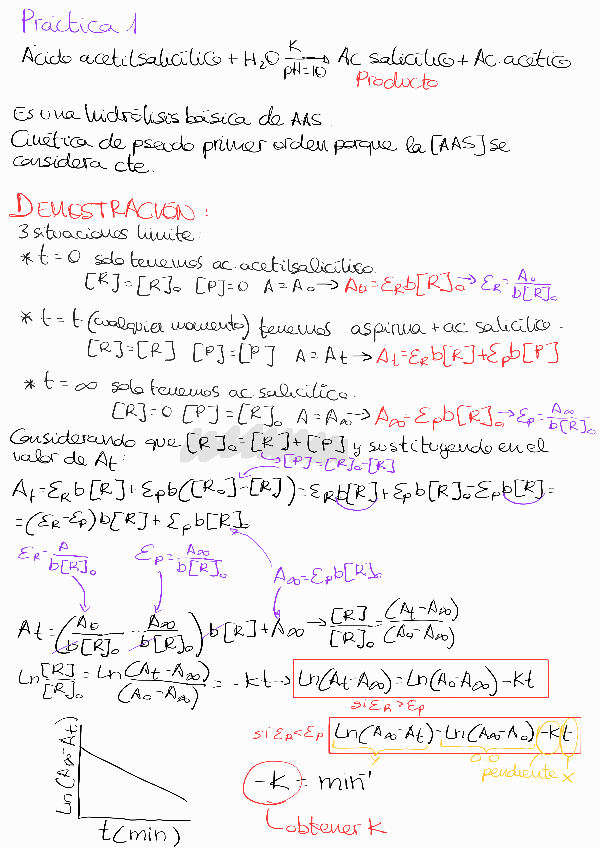 Práctica 1
Ácido acetilsalicílico + H₂O —K/pH=10→ Ac salicílico + Ac. acético
Producto
Es una hidrólisis básica de AAS.
Cinética de pseudo primer orden porque la [AAS] se
considera cte.
DEMOSTRACIÓN:
3 situaciones límite:
* t = 0 solo tenemos ac. acetilsalicílico.
[R]=[R]₀ [P]=0 A = A₀ → A₀ = ε_R b[R]₀ → ε_R = A₀/b[R]₀
* t = t (cualquier momento) tenemos aspirina + ac. salicílico.
[R]=[R] [P]=[P] A = At → At = ε_R b[R] + ε_p b[P]
* t = ∞ solo tenemos ac salicílico.
[R]=0 [P]=[R]₀ A = A∞ → A∞ = ε_p b[R]₀ → ε_p = A∞/b[R]₀
Considerando que [R]₀=[R]+[P] y sustituyendo en el
→ [P]=[R]₀-[R]
valor de At:
At = ε_R b[R] + ε_p b([R₀]-[R]) = ε_R b[R] + ε_p b[R]₀ - ε_p b[R] =
= (ε_R - ε_p) b[R] + ε_p b[R]₀
ε_R = A/b[R]₀ ε_p = A∞/b[R]₀ A∞ = ε_p b[R]₀
At = (A₀/b[R]₀ - A∞/b[R]₀) b[R] + A∞ → [R]/[R]₀ = (At-A∞)/(A₀-A∞)
Ln [R]/[R]₀ = Ln (At-A∞)/(A₀-A∞) = -kt → Ln(At-A∞) = Ln(A₀-A∞) - Kt
si ε_R > ε_p
si ε_R < ε_p Ln(A∞-At) = Ln(A∞-A₀) - kt
y o.o pendiente x
Ln(A∞-At)
t(min)
-K = min⁻¹
obtener K